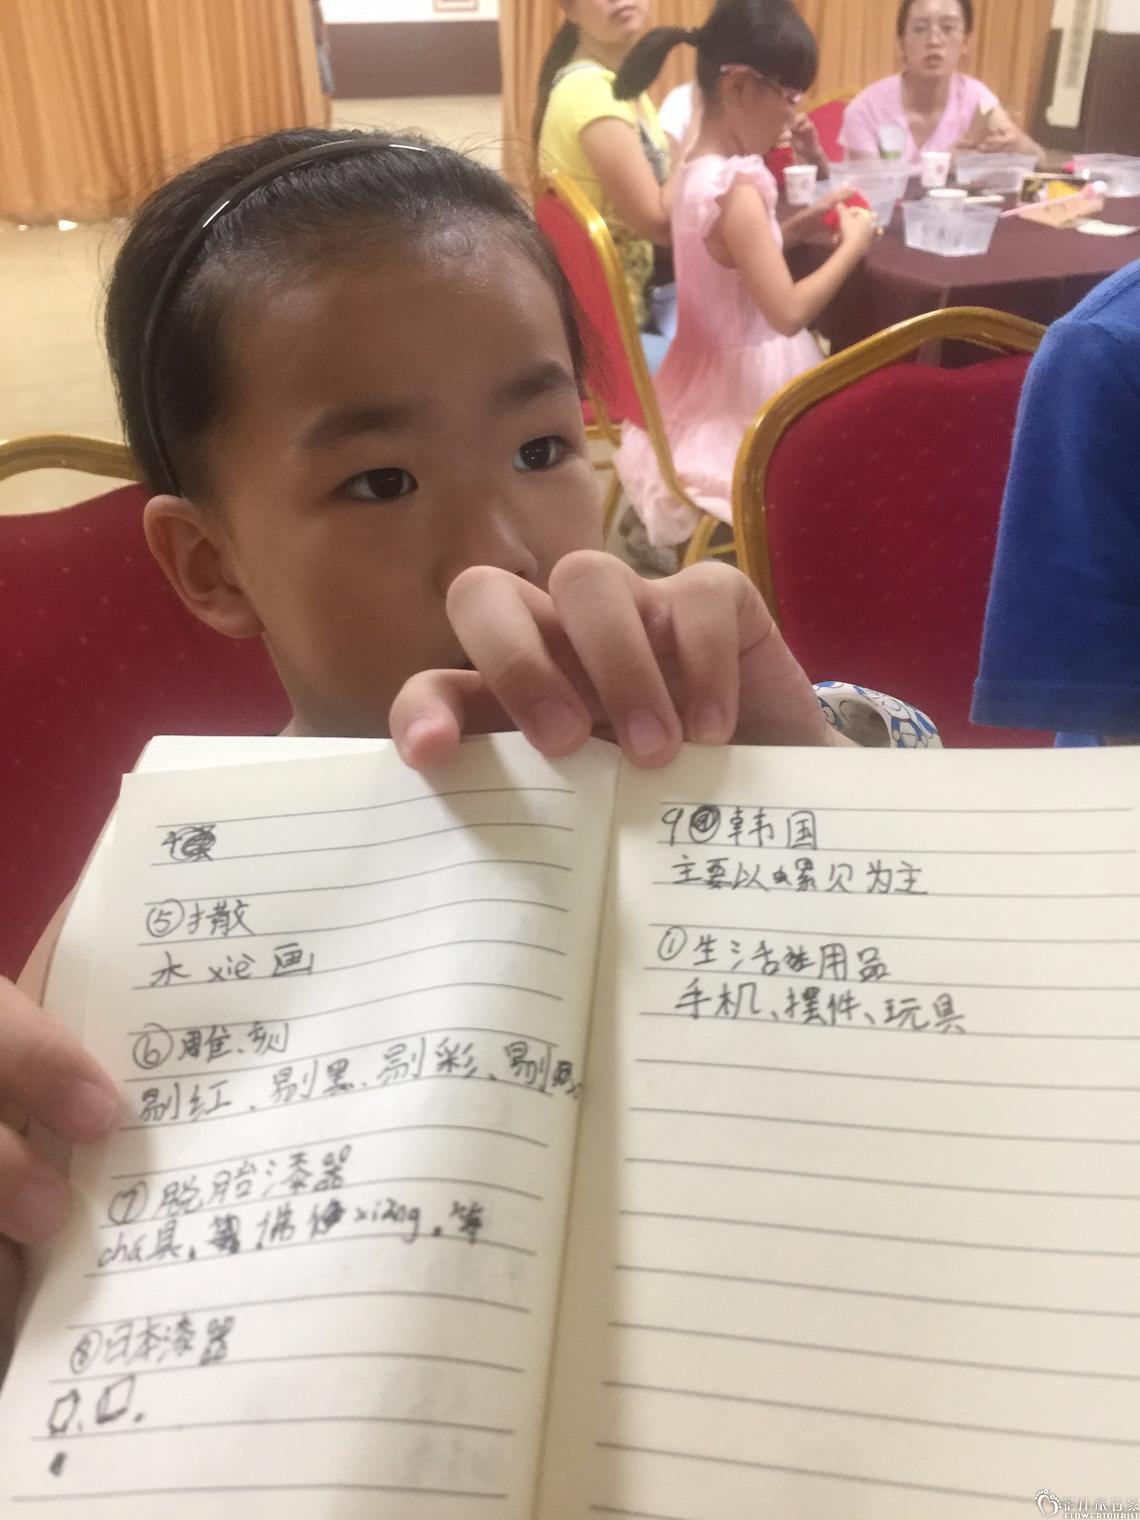 ⑤撒
水xiè画
⑥雕、刻
剔红、剔黑、剔彩、剔
⑦脱胎漆器
chá具。佛xiàng。等
⑧日本漆器
9韩国
主要以螺贝为主
①生活用品
手机、摆件、玩具
FLOWERTOURIST